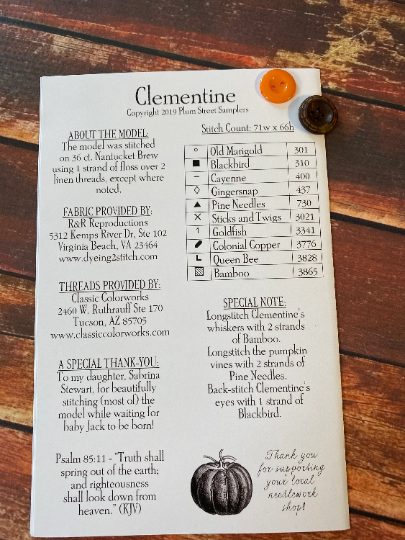 Clementine
Copyright 2019 Plum Street Samplers
ABOUT THE MODEL:
The model was stitched
on 36 ct. Nantucket Brew
using 1 strand of floss over 2
linen threads, except where
noted.
FABRIC PROVIDED BY:
R&R Reproductions
5312 Kemps River Dr. Ste 102
Virginia Beach, VA 23464
www.dyeing2stitch.com
THREADS PROVIDED BY:
Classic Colorworks
2460 W. Ruthrauff Ste 170
Tucson, AZ 85705
www.classiccolorworks.com
A SPECIAL THANK-YOU:
To my daughter, Sabrina
Stewart, for beautifully
stitching (most of) the
model while waiting for
baby Jack to be born!
Psalm 85:11 - "Truth shall
spring out of the earth;
and righteousness
shall look down from
heaven." (KJV)
Stitch Count: 71w x 66h
Old Marigold 301
Blackbird 310
Cayenne 400
Gingersnap 437
Pine Needles 730
Sticks and Twigs 3021
Goldfish 3341
Colonial Copper 3776
Queen Bee 3828
Bamboo 3865
SPECIAL NOTE:
Longstitch Clementine's
whiskers with 2 strands
of Bamboo.
Longstitch the pumpkin
vines with 2 strands of
Pine Needles.
Back-stitch Clementine's
eyes with 1 strand of
Blackbird.
Thank you
for supporting
your local
needlework
shop!